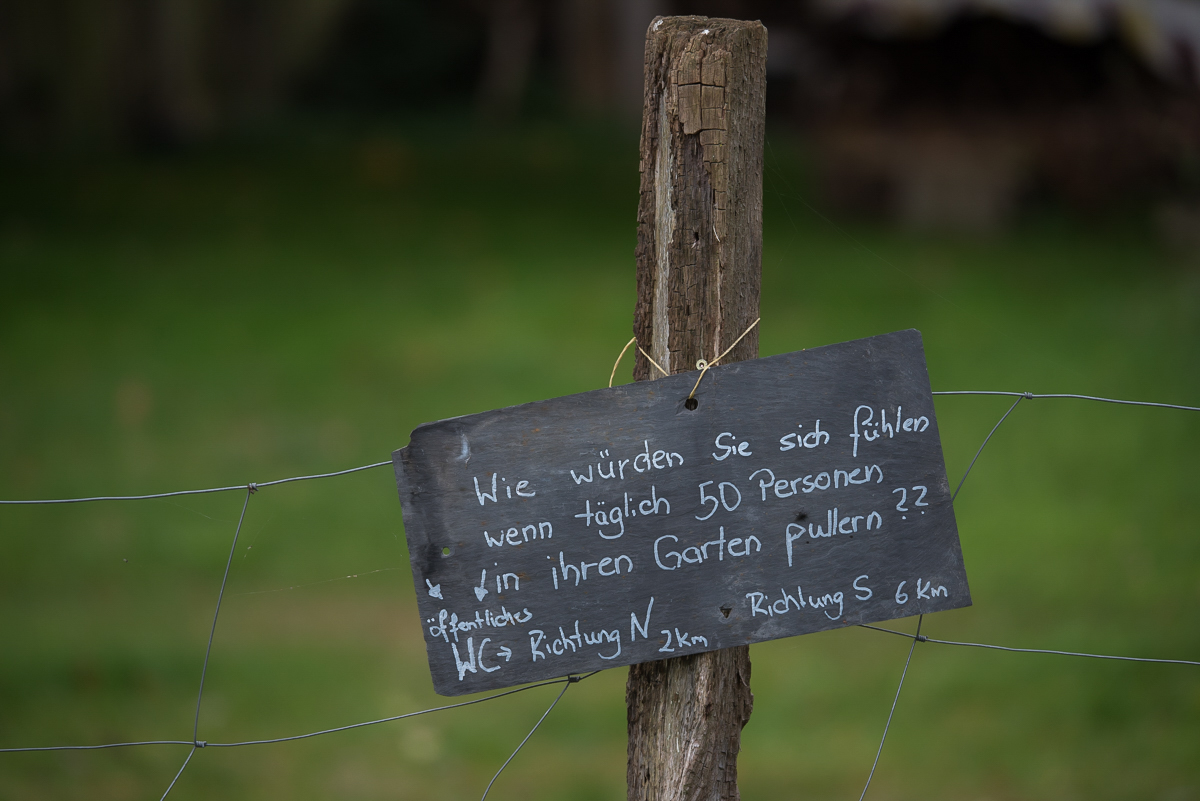 Wie würden Sie sich fühlen
wenn täglich 50 Personen
in ihren Garten pullern ??
öffentliches
WC → Richtung N 2km Richtung S 6 Km